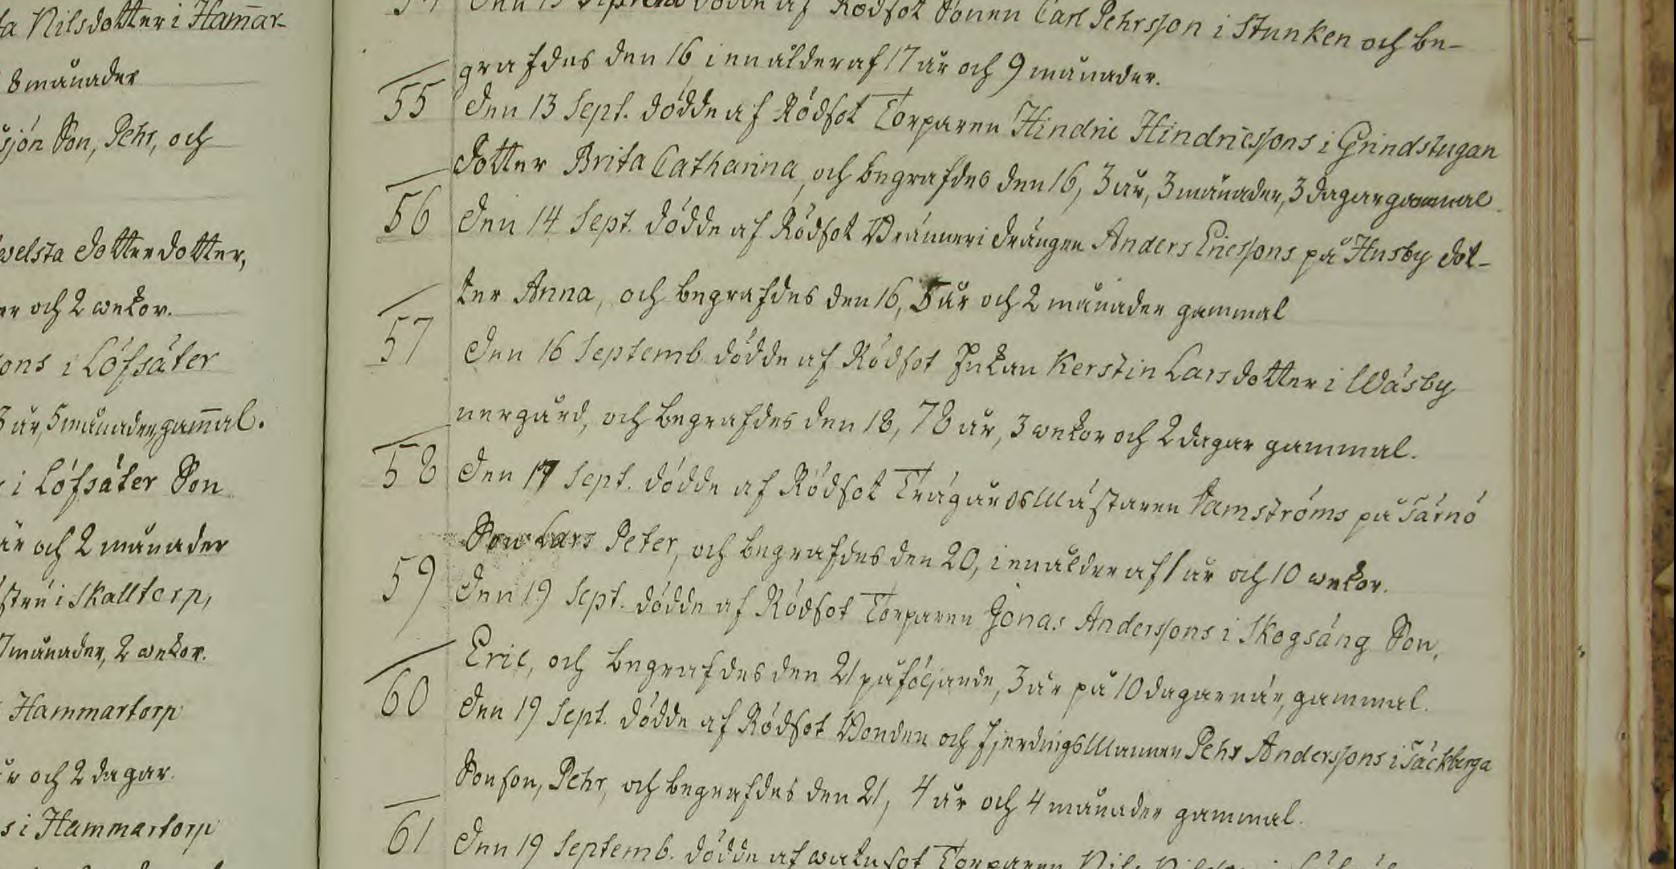 ta Nilsdotter i Ham̄ar-
8 månader
sjön Son, Pehr, och
welsta dotterdotter,
er och 2 wekor.
sons i Löfsäter
3 år, 5 månader, gam̄al.
i Löfsäter Son
år och 2 månader
i Skalltorp,
7 månader, 2 wekor.
Hammartorp
år och 2 dagar.
s i Hammartorp
54 Den 13 Septemb dödde af Rödsot Sonen Carl Pehrsson i Stunken och be-
grafdes den 16 i en ålder af 17 år och 9 månader.
55 Den 13 Sept. dödde af Rödsot Torparen Hindric Hindricssons i Grindstugan
dotter Brita Catharina, och begrafdes den 16, 3 år, 3 månader, 3 dagar gammal.
56 Den 14 Sept. dödde af Rödsot Bränneri drängen Anders Ericssons på Husby dot-
ter Anna, och begrafdes den 16, 5 år och 2 månader gammal
57 Den 16 Septemb. dödde af Rödsot Enkan Kerstin Larsdotter i Wäsby
nergård, och begrafdes den 18, 78 år, 3 wekor och 2 dagar gammal.
58 Den 17 Sept. dödde af Rödsot TrägårdsMästaren Famströms på Tärnö
Son Lars Peter, och begrafdes den 20, i en ålder af 1 år och 10 wekor.
59 Den 19 Sept. dödde af Rödsot Torparen Jonas Anderssons i Skogsäng Son,
Eric, och begrafdes den 21 påföljande, 3 år på 10 dagar när, gammal.
60 Den 19 Sept. dödde af Rödsot Bonden och FjerdingsMannen Pehr Anderssons i Täckberga
Sonson, Pehr, och begrafdes den 21, 4 år och 4 månader gammal.
61 Den 19 Septemb. dödde af Torparen Nils